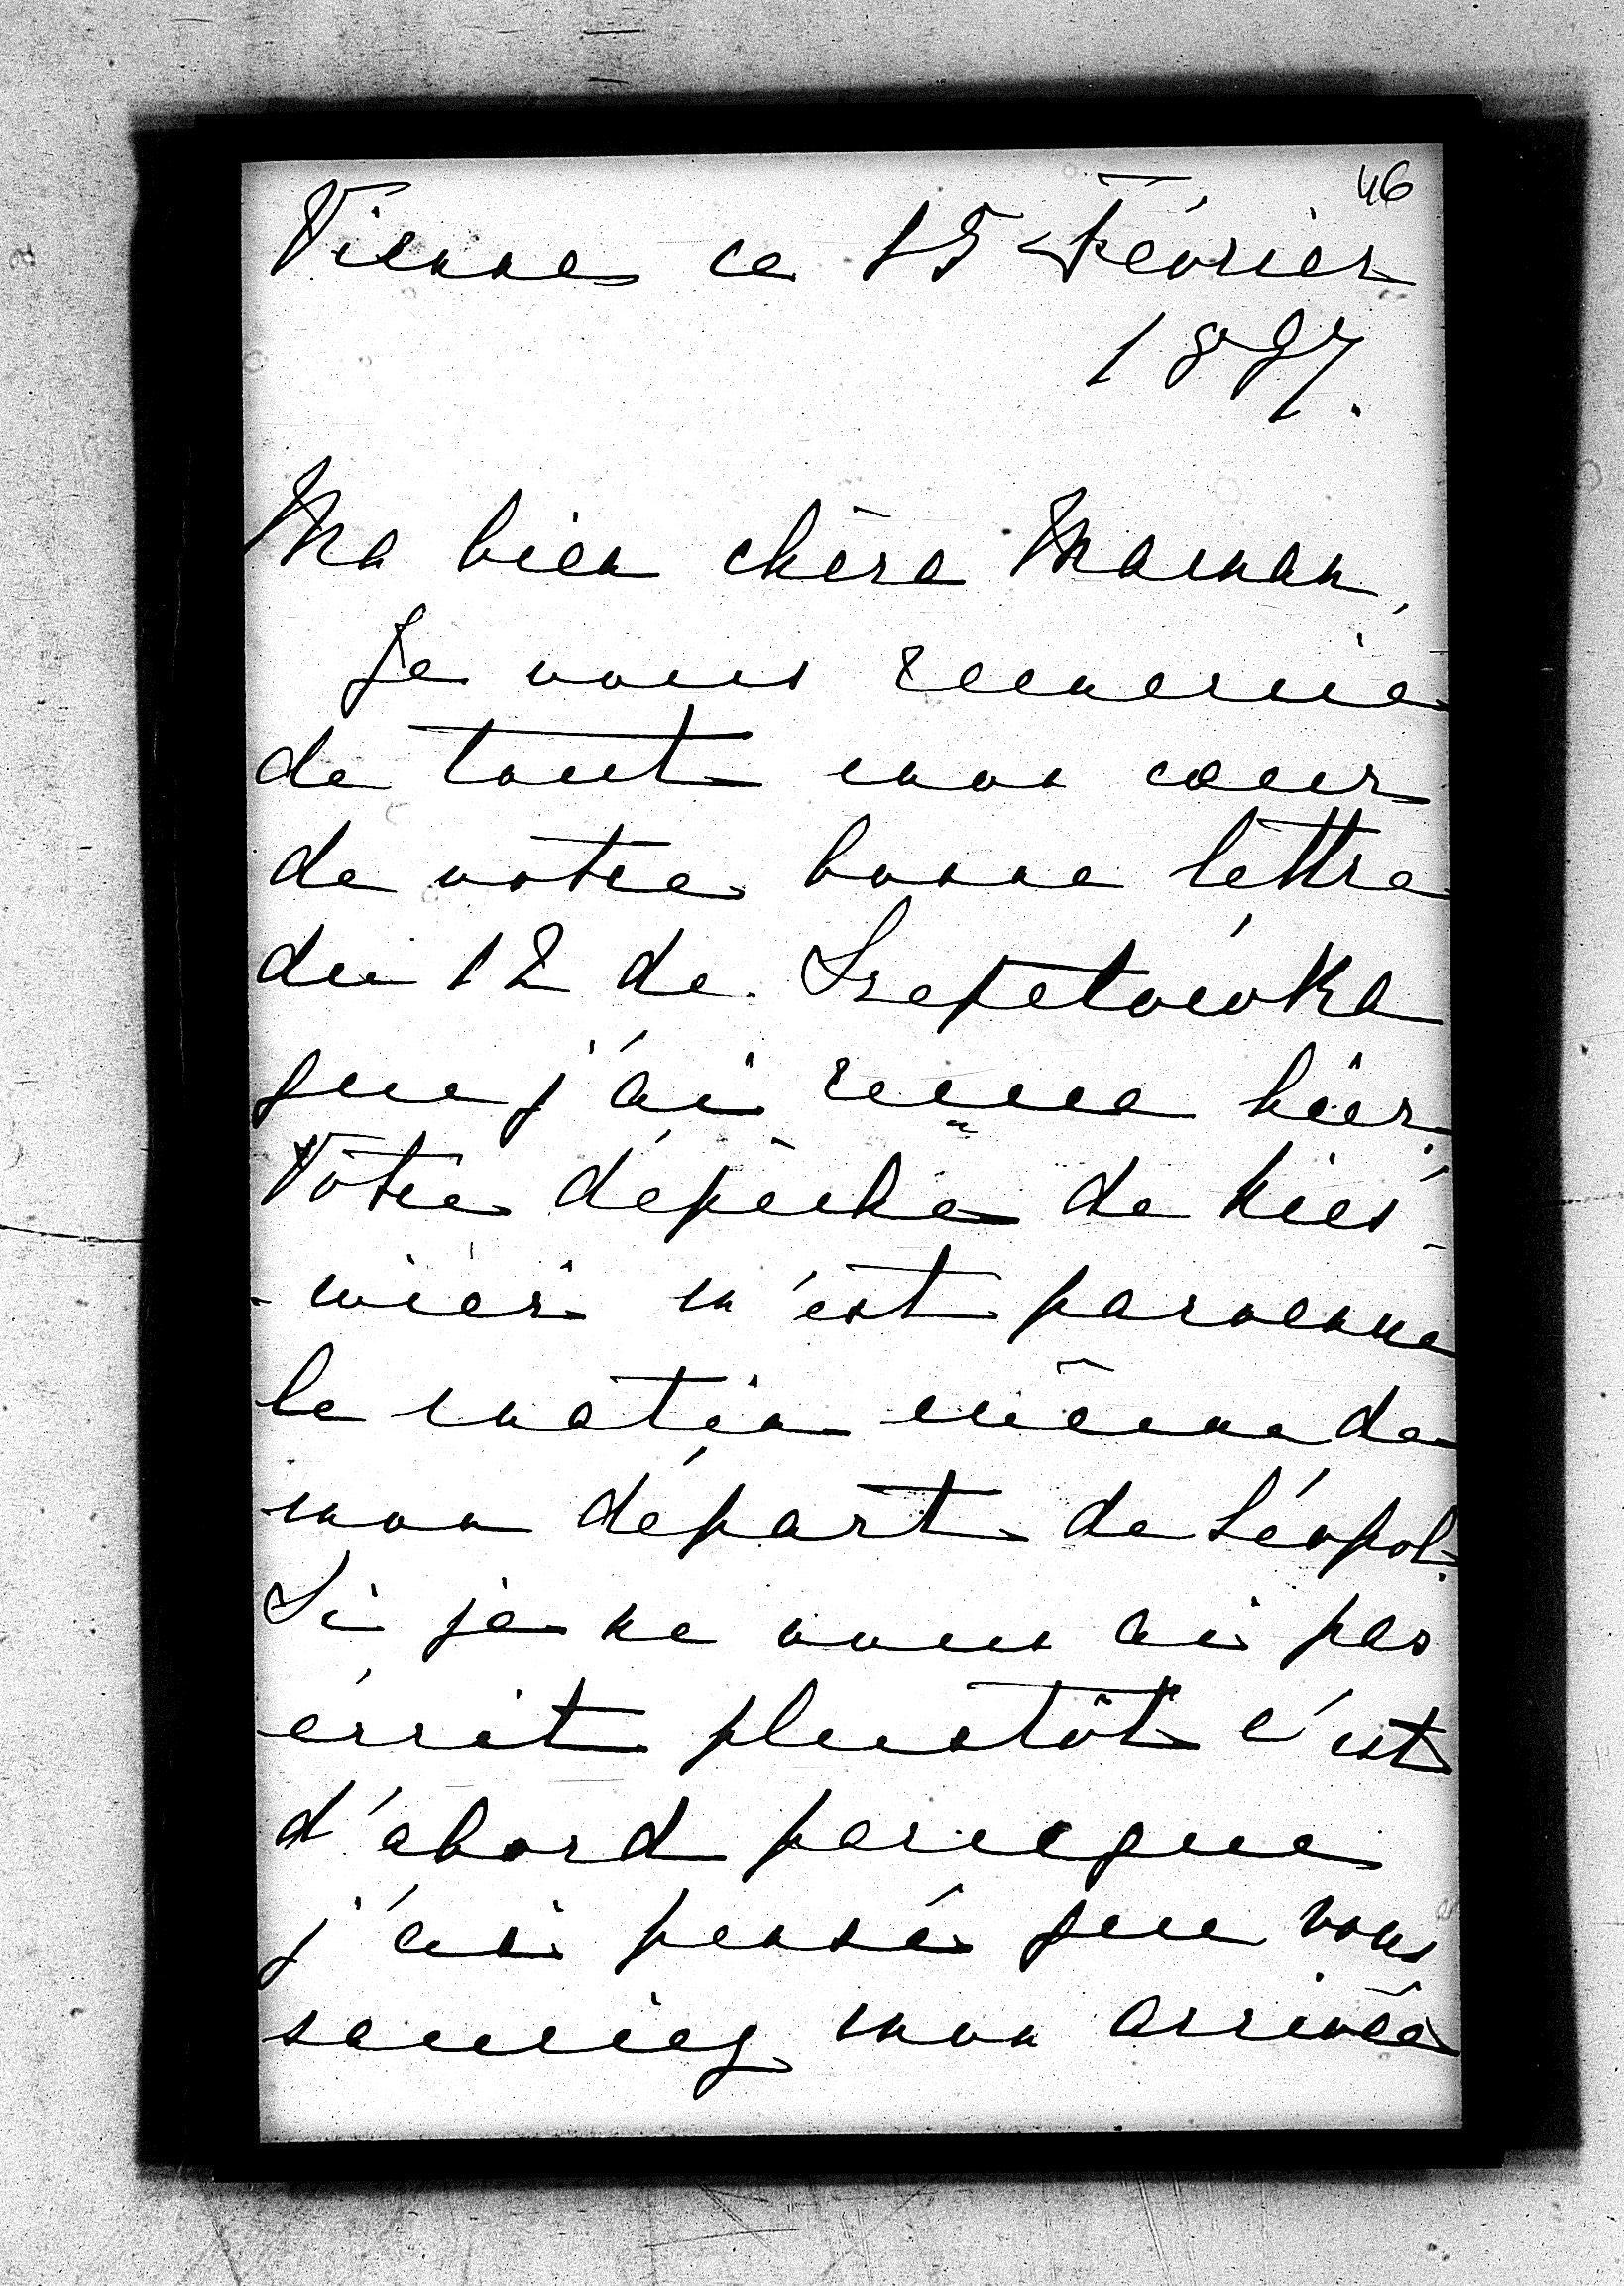 46
Vienne ce 15 Février
1897.
Ma bien chère Maman,
Je vous remercie
de tout mon cœur
de votre bonne lettre
du 12 de Szepetówka
que j'ai reçue hier.
Vôtre dépèche de Kies-
-wier m'est parvenue
le matin même de
mon départ de Léopol.
Si je ne vous ai pas
écrit plustôt c'est
d'abord parceque
j'ai pensé que vous
sauriez mon arrivée